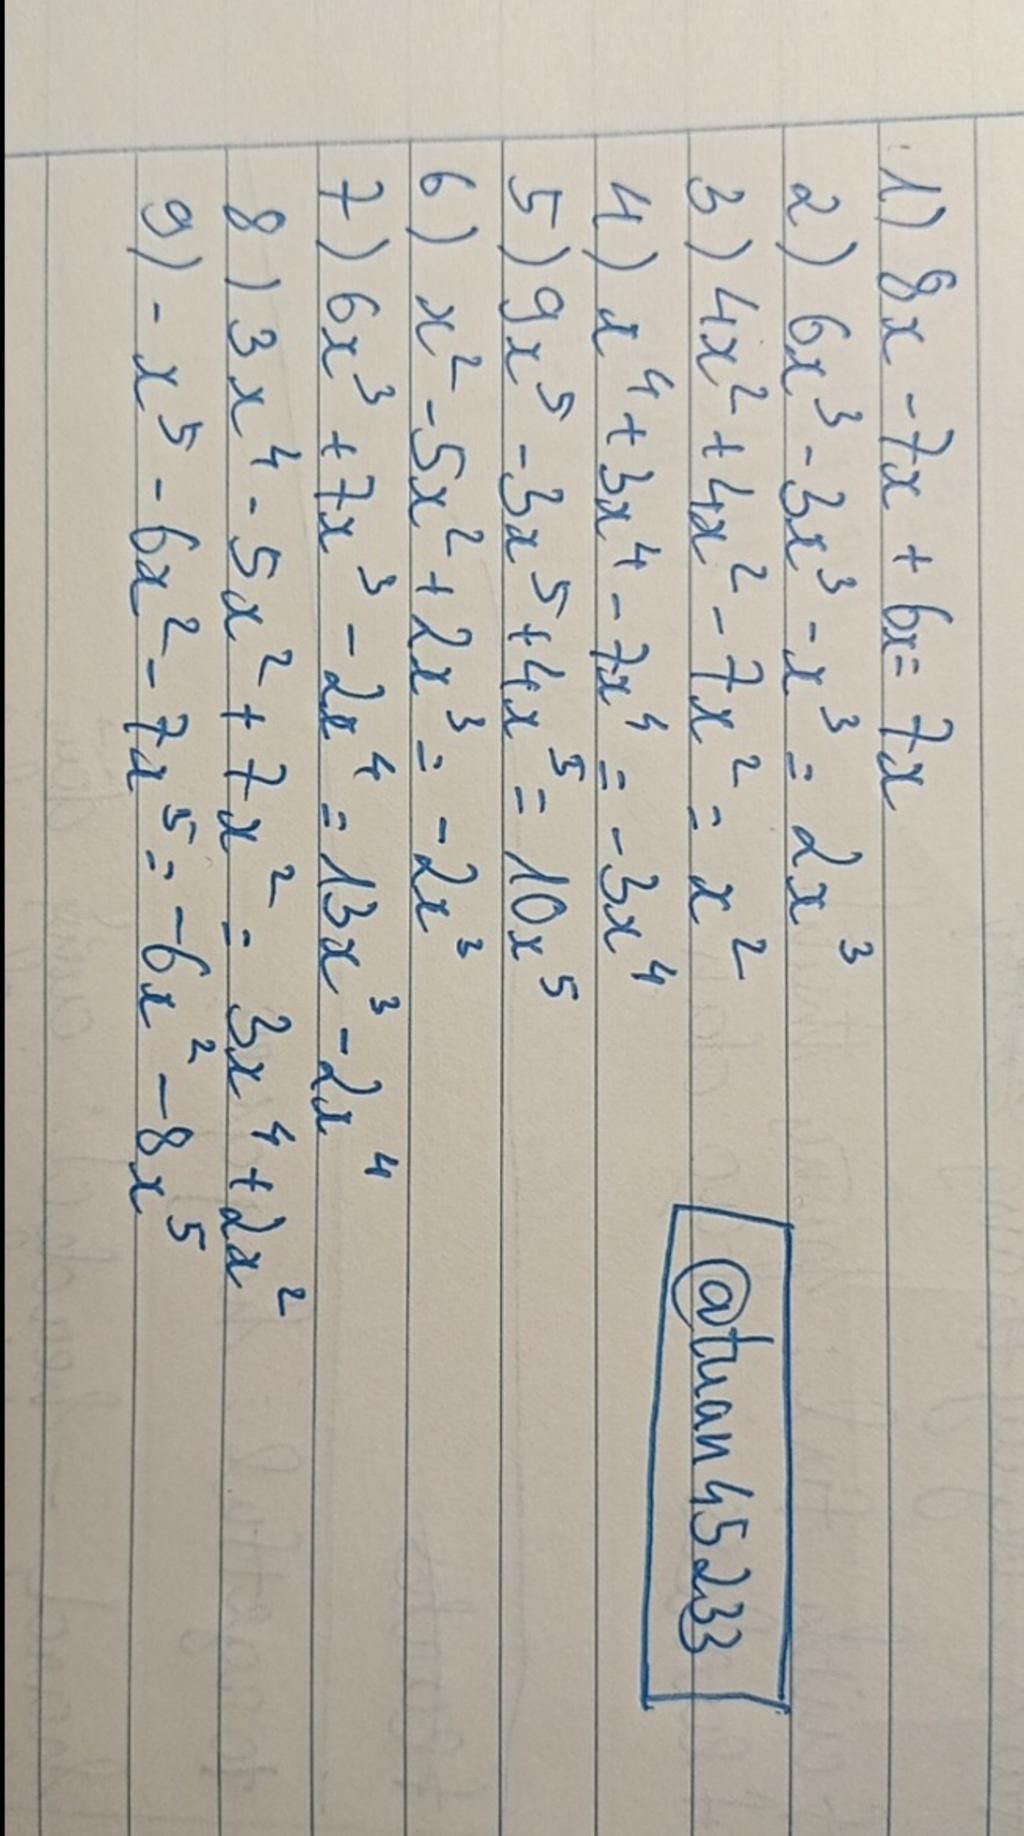 1) 8x - 7x + 6x = 7x
2) 6x³ - 3x³ - x³ = 2x³
3) 4x² + 4x² - 7x² = x²
4) x⁴ + 3x⁴ - 7x⁴ = -3x⁴
5) 9x⁵ - 3x⁵ + 4x⁵ = 10x⁵
6) x² - 5x² + 2x³ = -2x³
7) 6x³ + 7x³ - 2x⁴ = 13x³ - 2x⁴
8) 3x⁴ - 5x² + 7x² = 3x⁴ + 2x²
9) - x⁵ - 6x² - 7x⁵ = -6x² - 8x⁵
@tuan45233